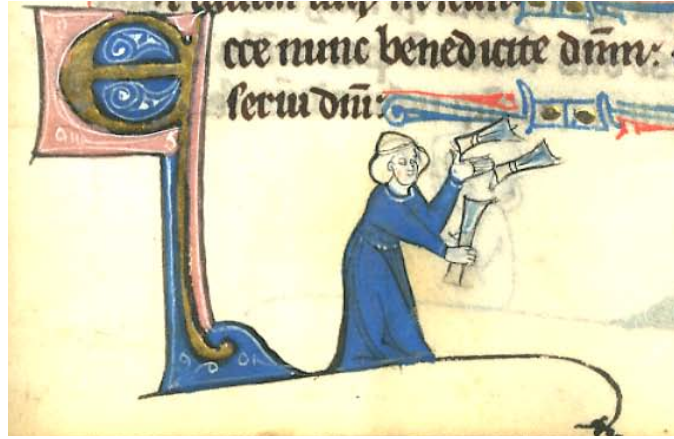 Ecce nunc benedicite dñm:
serui dñi: